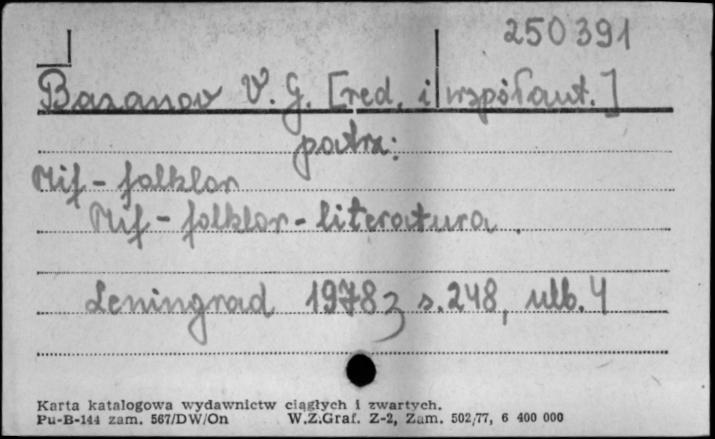 250391
Bazanov V. G. [red. i współaut.]
patrz:
Mif - folklor
Mif - folklor - literatura.
Leningrad 1978 s. 248, nlb. 4
Karta katalogowa wydawnictw ciągłych i zwartych.
Pu-B-144 zam. 567/DW/On W.Z.Graf. Z-2, Zam. 502/77, 6 400 000